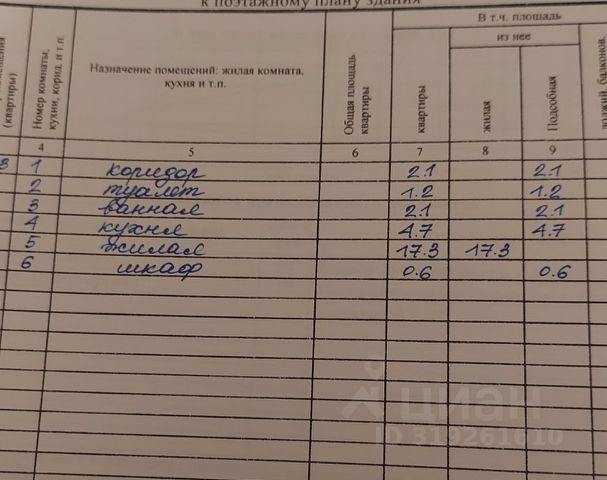 к поэтажному плану здания
(квартиры)
Номер комнаты, кухни, корид. и т.п.
Назначение помещений: жилая комната, кухня и т.п.
Общая площадь квартиры
В т.ч. площадь
из нее
квартиры
жилая
Подсобная
4 5 6 7 8 9
1 коридор 2.1 2.1
2 туалет 1.2 1.2
3 ванная 2.1 2.1
4 кухня 4.7 4.7
5 жилая 17.3 17.3
6 шкаф 0.6 0.6
циан
ID 319261610